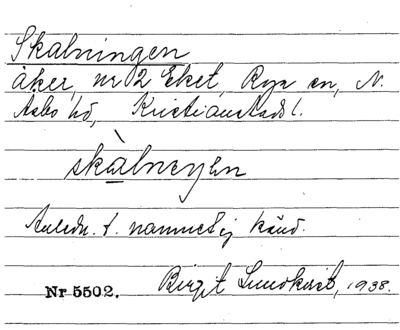 Skalningen
åker, nr 2 Eket, Rya sn, N.
Åsbo hd, Kristianstads l.
skàlneyen
Anledn. t. namnet ej känd.
Nr 5502. Birgit Sundkvist, 1938.